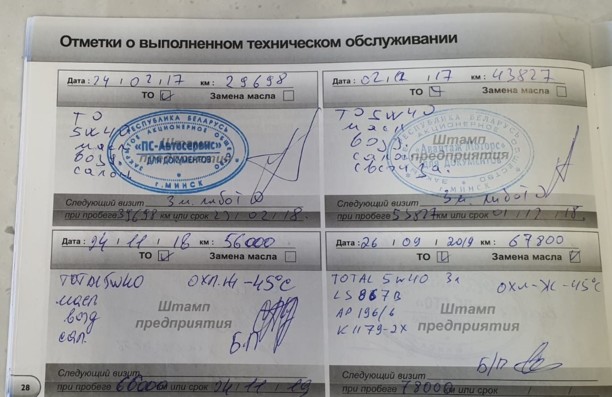 Отметки о выполненном техническом обслуживании
Дата: 24 02 17 км: 29698
ТО Замена масла
ТО
5W40
масл
возд
салон
РЕСПУБЛИКА БЕЛАРУСЬ
АКЦИОНЕРНОЕ ОБЩЕСТВО
«ПС-Автосервис»
ДЛЯ ДОКУМЕНТОВ
г. МИНСК
Штамп
предприятия
Следующий визит
при пробеге 39698 км или срок 02 18
Дата: 02 17 км: 43827
ТО Замена масла
ТО 5W40
масл
возд
салон
Штамп
предприятия
Следующий визит
при пробеге 53827 км или срок 18
24 11 18 56000
ТО Замена масла
TOTAL 5W40 охл.ж -45°C
масл
возд
сал.
Штамп
предприятия
Б.П
Следующий визит
при пробеге 66000 км или срок 24 11 19
26 09 2019 км: 67800
ТО Замена масла
TOTAL 5W40 охл-ж -45°C
LS 867B
AP 196/6
K1179-2X
Штамп
предприятия
Б/П
Следующий визит
при пробеге 78000 км или срок
28